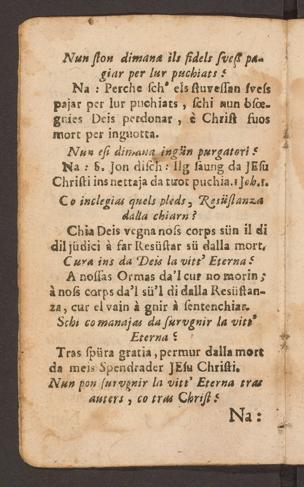 Nun ston dimana ils fidels svess pa-
giar per lur puchiats?
Na: Perche sch' els stuvessan svess
pajar per lur puchiats, schi nun bsœ-
gnies Deis perdonar, è Christ fuos
mort per inguotta.
Nun esi dimana ingün purgatori?
Na: S. Jon disch: Ilg saung da JEsu
Christi ins nettaja da tuot puchia. 1 Joh. 1.
Co inclegias quels pleds, Resüstanza
dalla chiarn?
Chia Deis vegna noss corps sün il di
dil jüdici à far Resüstar sü dalla mort.
Cura ins da Deis la vitt' Eterna?
A nossas Ormas da'l cur no morin;
à noss corps da'l sü'l di dalla Resüstan-
za, cur el vain à gnir à sentenchiar.
Schi co manajas da survgnir la vitt'
Eterna?
Tras spüra gratia, permur dalla mort
da meis Spendrader JEsu Christi.
Nun pon survgnir la vitt' Eterna tras
auters, co tras Christ?
Na: